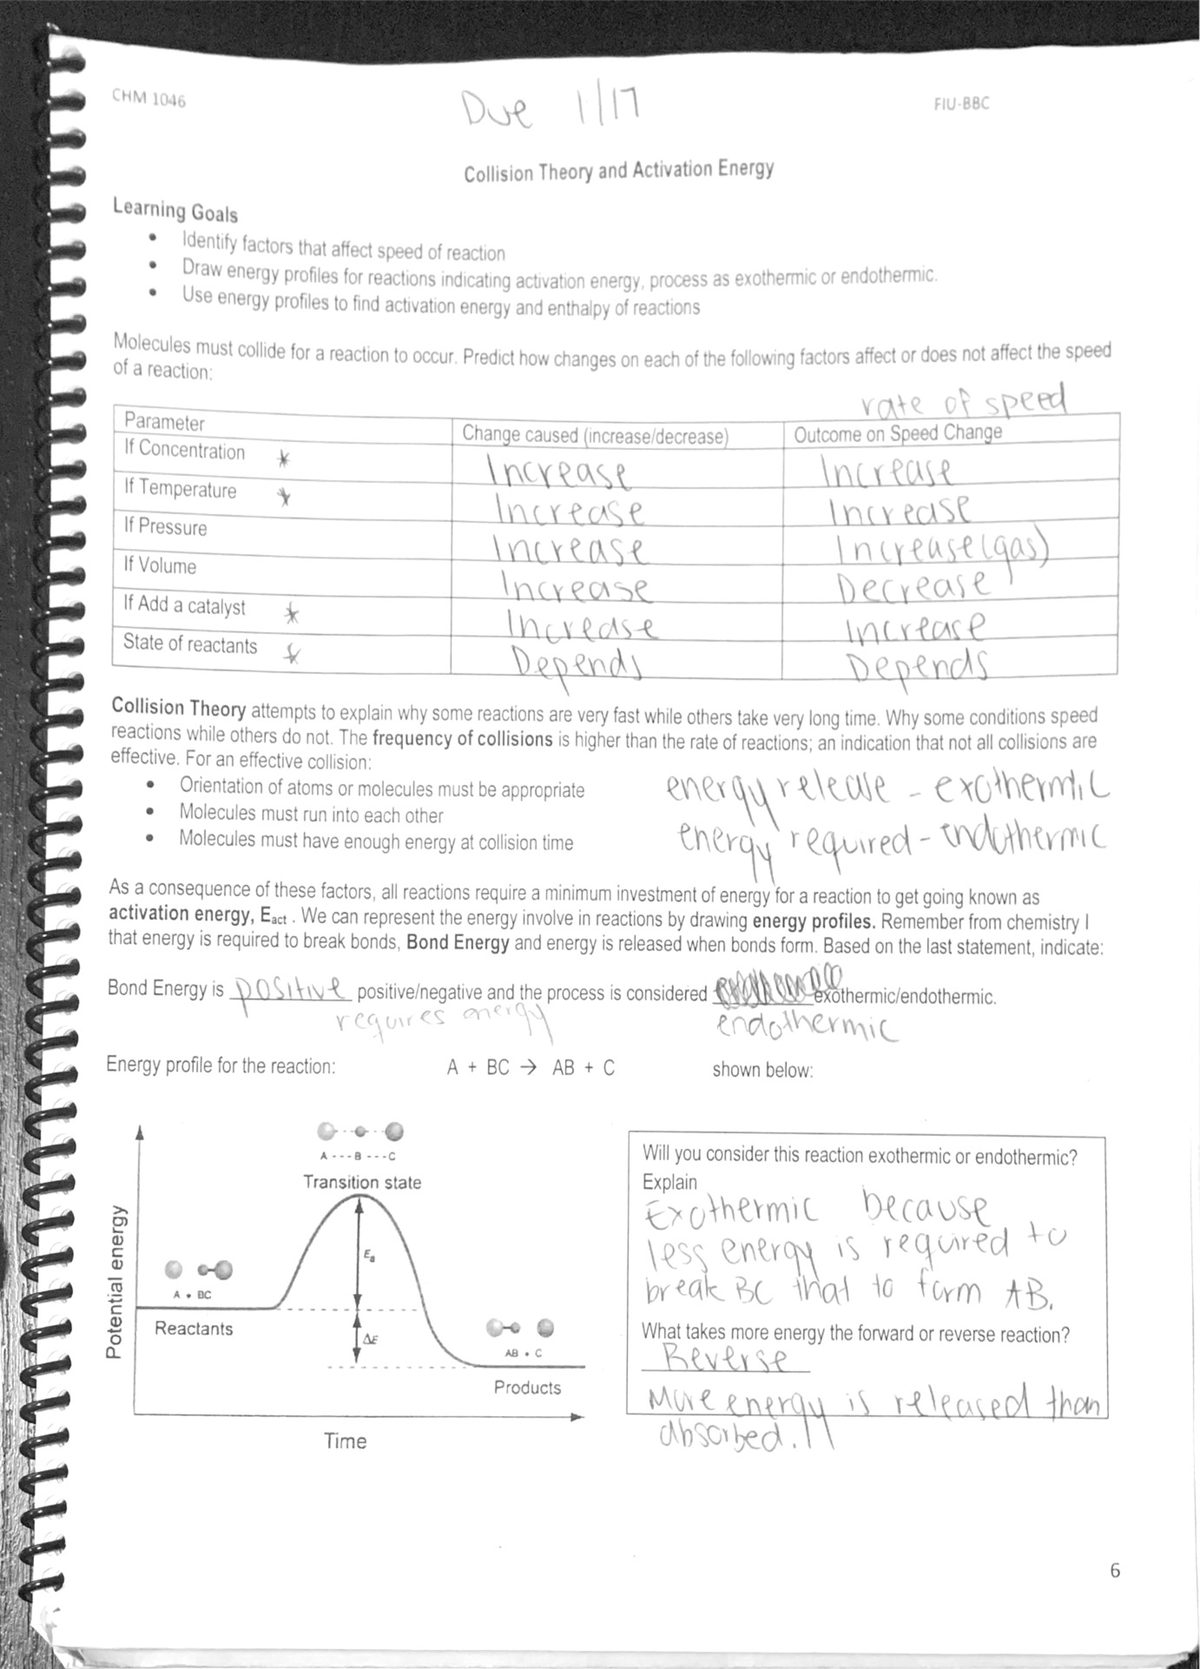 CHM 1046
Due 1/17
FIU-BBC
Collision Theory and Activation Energy
Learning Goals
• Identify factors that affect speed of reaction
• Draw energy profiles for reactions indicating activation energy, process as exothermic or endothermic.
• Use energy profiles to find activation energy and enthalpy of reactions
Molecules must collide for a reaction to occur. Predict how changes on each of the following factors affect or does not affect the speed
of a reaction:
rate of speed
Parameter Change caused (increase/decrease) Outcome on Speed Change
If Concentration * Increase Increase
If Temperature * Increase Increase
If Pressure Increase Increase (gas)
If Volume Increase Decrease
If Add a catalyst * Increase Increase
State of reactants * Depends Depends
Collision Theory attempts to explain why some reactions are very fast while others take very long time. Why some conditions speed
reactions while others do not. The frequency of collisions is higher than the rate of reactions; an indication that not all collisions are
effective. For an effective collision:
• Orientation of atoms or molecules must be appropriate
• Molecules must run into each other
• Molecules must have enough energy at collision time
energy release - exothermic
energy required - endothermic
As a consequence of these factors, all reactions require a minimum investment of energy for a reaction to get going known as
activation energy, Eact . We can represent the energy involve in reactions by drawing energy profiles. Remember from chemistry I
that energy is required to break bonds, Bond Energy and energy is released when bonds form. Based on the last statement, indicate:
Bond Energy is positive positive/negative and the process is considered exothermic/endothermic.
requires energy endothermic
Energy profile for the reaction: A + BC → AB + C shown below:
A - - - B - - - C
Transition state
Potential energy
Ea
A + BC
Reactants
ΔE
AB + C
Products
Time
Will you consider this reaction exothermic or endothermic?
Explain
Exothermic because
less energy is required to
break BC that to form AB.
What takes more energy the forward or reverse reaction?
Reverse
More energy is released than
absorbed.
6